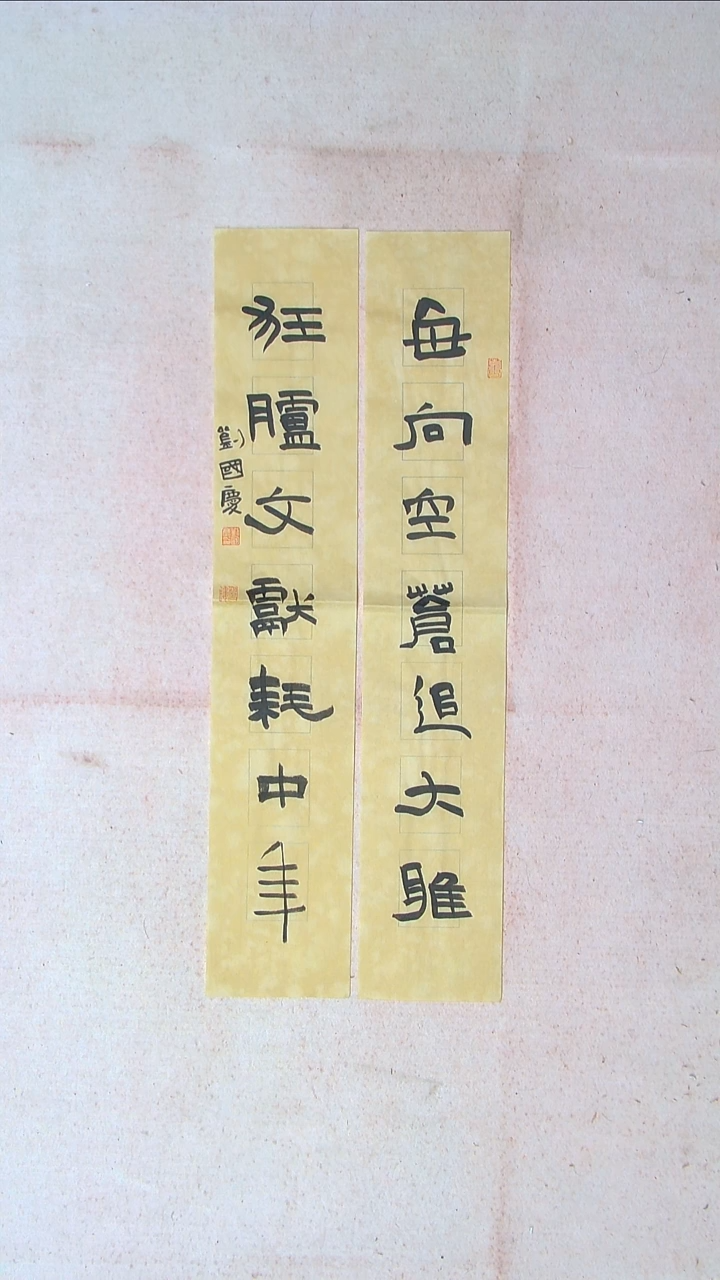 每向空蒼追大雅
狂臚文獻耗中年
劉國慶